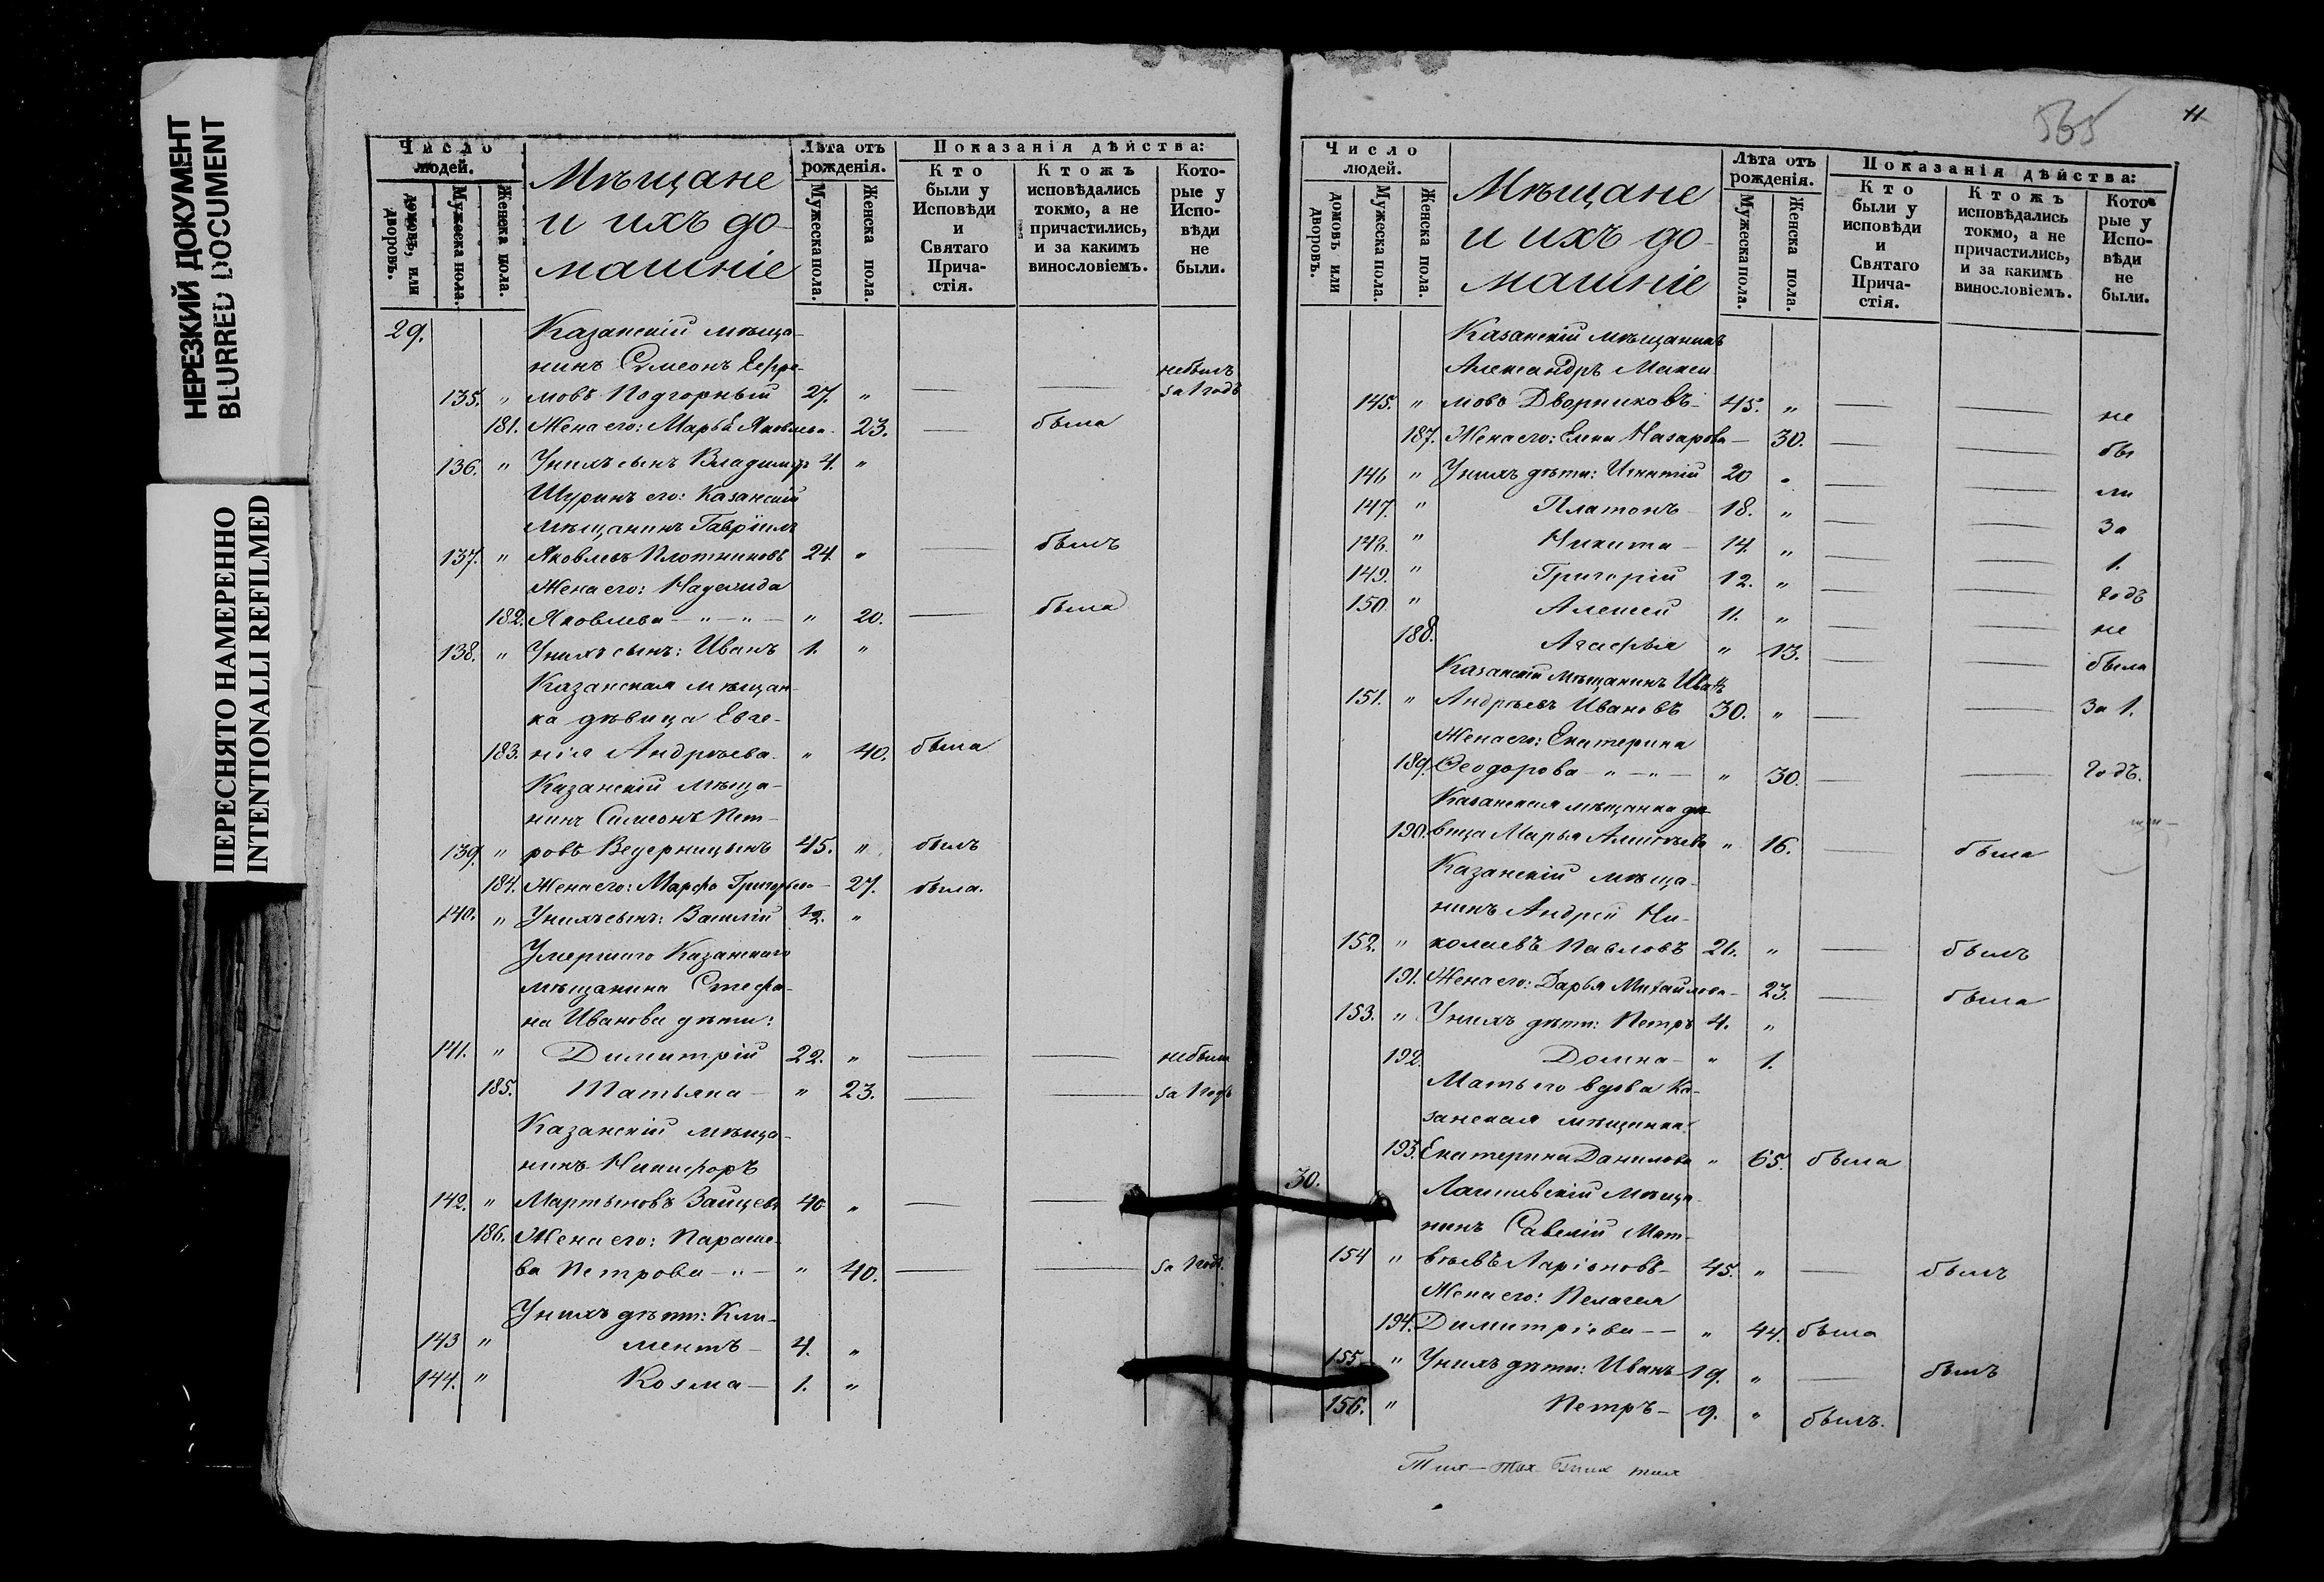 НЕРЕЗКИЙ ДОКУМЕНТ
BLURRED DOCUMENT
ПЕРЕСНЯТО НАМЕРЕННО
INTENTIONALLI REFILMED
Число людей.
домовъ, или дворовъ.
Мужеска пола.
Женска пола.
Мѣщане
и ихъ до-
машніе
Лѣта отъ рожденія.
Мужеска пола.
Женска пола.
Показанія дѣйства:
Кто были у Исповѣди и Святаго Прича-стія.
Ктожъ исповѣдались токмо, а не причастились, и за какимъ винословіемъ.
Кото-рые у Испо-вѣди не были.
29. Казанскій мѣща-
нинъ Симеонъ Ефре- небылъ
135. " мовъ Подгорный 27. " — — за 1 годъ
181. Жена его: Марья Яковлева 23. — была
136. " У нихъ сынъ Владиміръ 4. "
Шуринъ его: Казанскій
мѣщанинъ Гавріилъ
137. " Яковлевъ Плотниковъ 24. " — былъ
Жена его: Надежда
182. Яковлева — " — " — " 20. — была
138. " У нихъ сынъ: Иванъ 1. "
Казанская мѣщан-
ка дѣвица Евге-
183. нія Андреева. " 40. была
Казанскій мѣща-
нинъ Симеонъ Пет-
139. " ровъ 45. " былъ
184. Жена его: Марфа Григорьева — 27. была.
140. " У нихъ сынъ: Василій ½. "
Умершаго Казанскаго
мѣщанина Стефа-
на Иванова дѣти:
141. " Димитрій 22. " — — небыли
185. Татьяна — " 23. — — за 1 годъ
Казанскій мѣща-
нинъ Никифоръ
142. " Мартыновъ Зайцевъ 40 " — —
186. Жена его: Параске-
ва Петрова — " — " 40. — — за 1 годъ.
У нихъ дѣти: Кли-
143 " ментъ — 4. "
144. " Козма — 1. "
565
11
Число людей.
домовъ или дворовъ.
Мужеска пола.
Женска пола.
Мѣщане
и ихъ до-
машніе
Лѣта отъ рожденія.
Мужеска пола.
Женска пола.
Показанія дѣйства:
Кто были у исповѣди и Святаго Прича-стія.
Ктожъ исповѣдались токмо, а не причастились, и за какимъ винословіемъ.
Кото-рые у Испо-вѣди не были.
Казанскій мѣщанинъ
Александръ Макси-
145. " мовъ Дворниковъ — 45. " — — не
187. Жена его: Елена Назарова — 30. — — бы
146 " У нихъ дѣти: Игнатій 20 " — — ли
147. " Платонъ — 18. " — — за
148. " Никита — 14. " — — 1.
149. " Григорій 12. " — — годъ
150. " Алексей 11. " — — не
188. Агафья " 13. — — была
Казанскій мѣщанинъ Иванъ
151. " Андреевъ Ивановъ 30. " — — за 1.
Жена его: Екатерина
189. Ѳеодорова — " — " — " 30. — — годъ.
Казанская мѣщанка дѣ-
190. вица Марья Алексѣева " 16. — была
Казанскій мѣща-
нинъ Андрей Ни-
152. " колаевъ Павловъ 26. " — былъ
191. Жена его: Дарья Михайлова — 23. — была
153. " У нихъ дѣти: Петръ 4. "
192. Домна — " 1.
Мать его вдова Ка-
занская мѣщанка
193. Екатерина Данилова " 65. была
30. Лаишевскій мѣща-
нинъ Савелій Мат-
154 " вѣевъ Ларіоновъ — 45. " — былъ
Жена его: Пелагея
194. Димитріева — — " 44. была
155 " У нихъ дѣти: Иванъ 19. " — былъ
156. " Петръ — 9. " былъ.